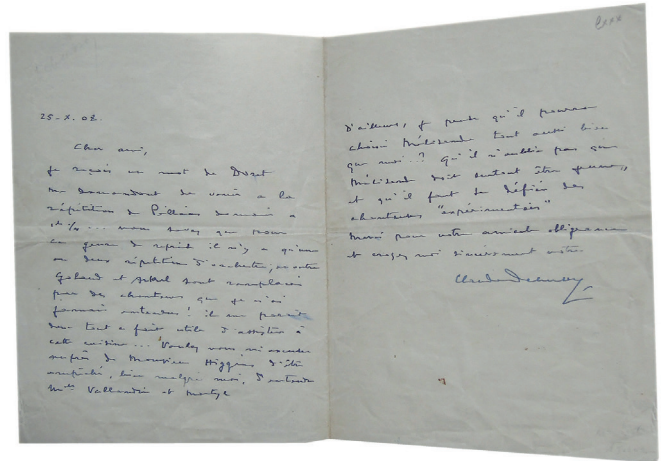 25-X. 08.
Cher ami,
Je reçois un mot de
me demandant de venir à la
répétition de Pelléas demain à
vous savez que pour
ce genre de reprise il n'y a qu'une
ou deux répétitions d'orchestre, en outre
Golaud et Arkel sont remplacés
par des chanteurs que je n'ai
jamais entendus! il me paraît
donc tout à fait utile d'assister à
cette ... Voulez-vous m'excuser
auprès de Monsieur Higgins d'être
empêché, bien malgré moi, d'entendre
Mlle Vallandri et
D'ailleurs, je pense qu'il pourra
choisir Mélisande tout aussi bien
que moi..? Qu'il n'oublie pas que
Mélisande doit surtout être
et qu'il faut se défier des
chanteuses "expérimentées"
Merci pour votre amicale obligeance
et croyez moi sincèrement votre
Claude Debussy